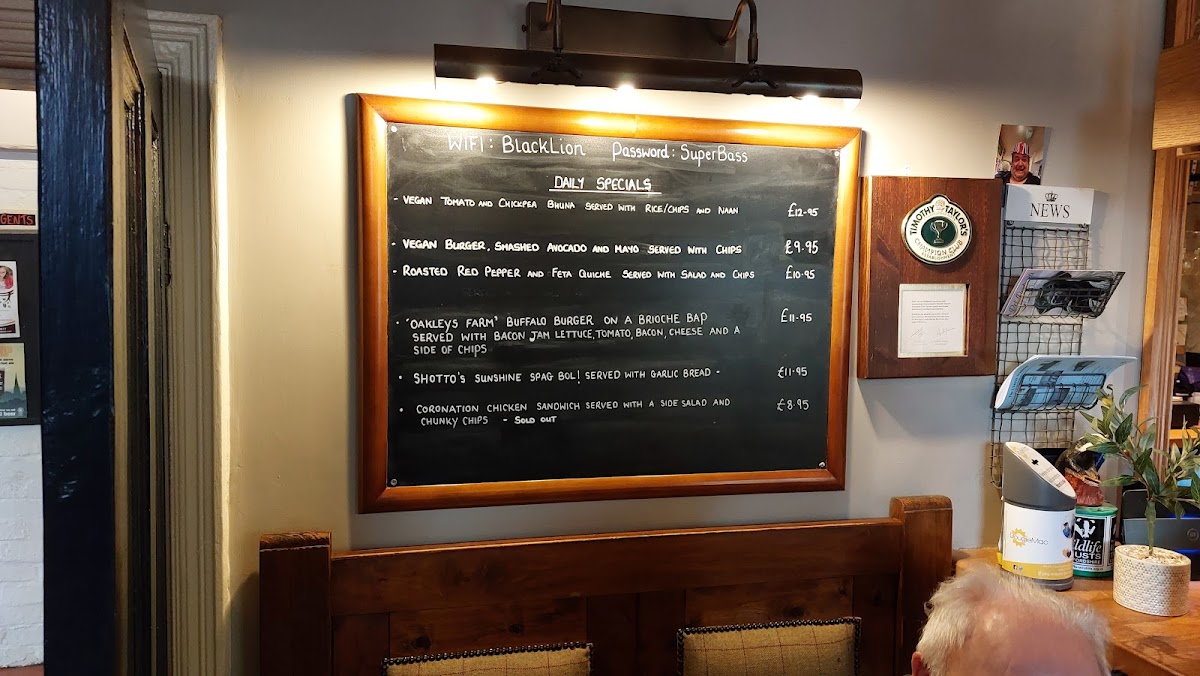 WIFI: BlackLion Password: SuperBass
DAILY SPECIALS
- VEGAN TOMATO AND CHICKPEA BHUNA SERVED WITH RICE/CHIPS AND NAAN £12.95
- VEGAN BURGER, SMASHED AVOCADO AND MAYO SERVED WITH CHIPS £9.95
- ROASTED RED PEPPER AND FETA QUICHE SERVED WITH SALAD AND CHIPS £10.95
• 'OAKLEYS FARM' BUFFALO BURGER ON A BRIOCHE BAP £11.95
SERVED WITH BACON JAM LETTUCE, TOMATO, BACON, CHEESE AND A
SIDE OF CHIPS
• SHOTTO'S SUNSHINE SPAG BOL! SERVED WITH GARLIC BREAD - £11.95
• CORONATION CHICKEN SANDWICH SERVED WITH A SIDE SALAD AND £8.95
CHUNKY CHIPS - SOLD OUT
TIMOTHY TAYLOR'S
CHAMPION CLUB
NEWS
GENTS